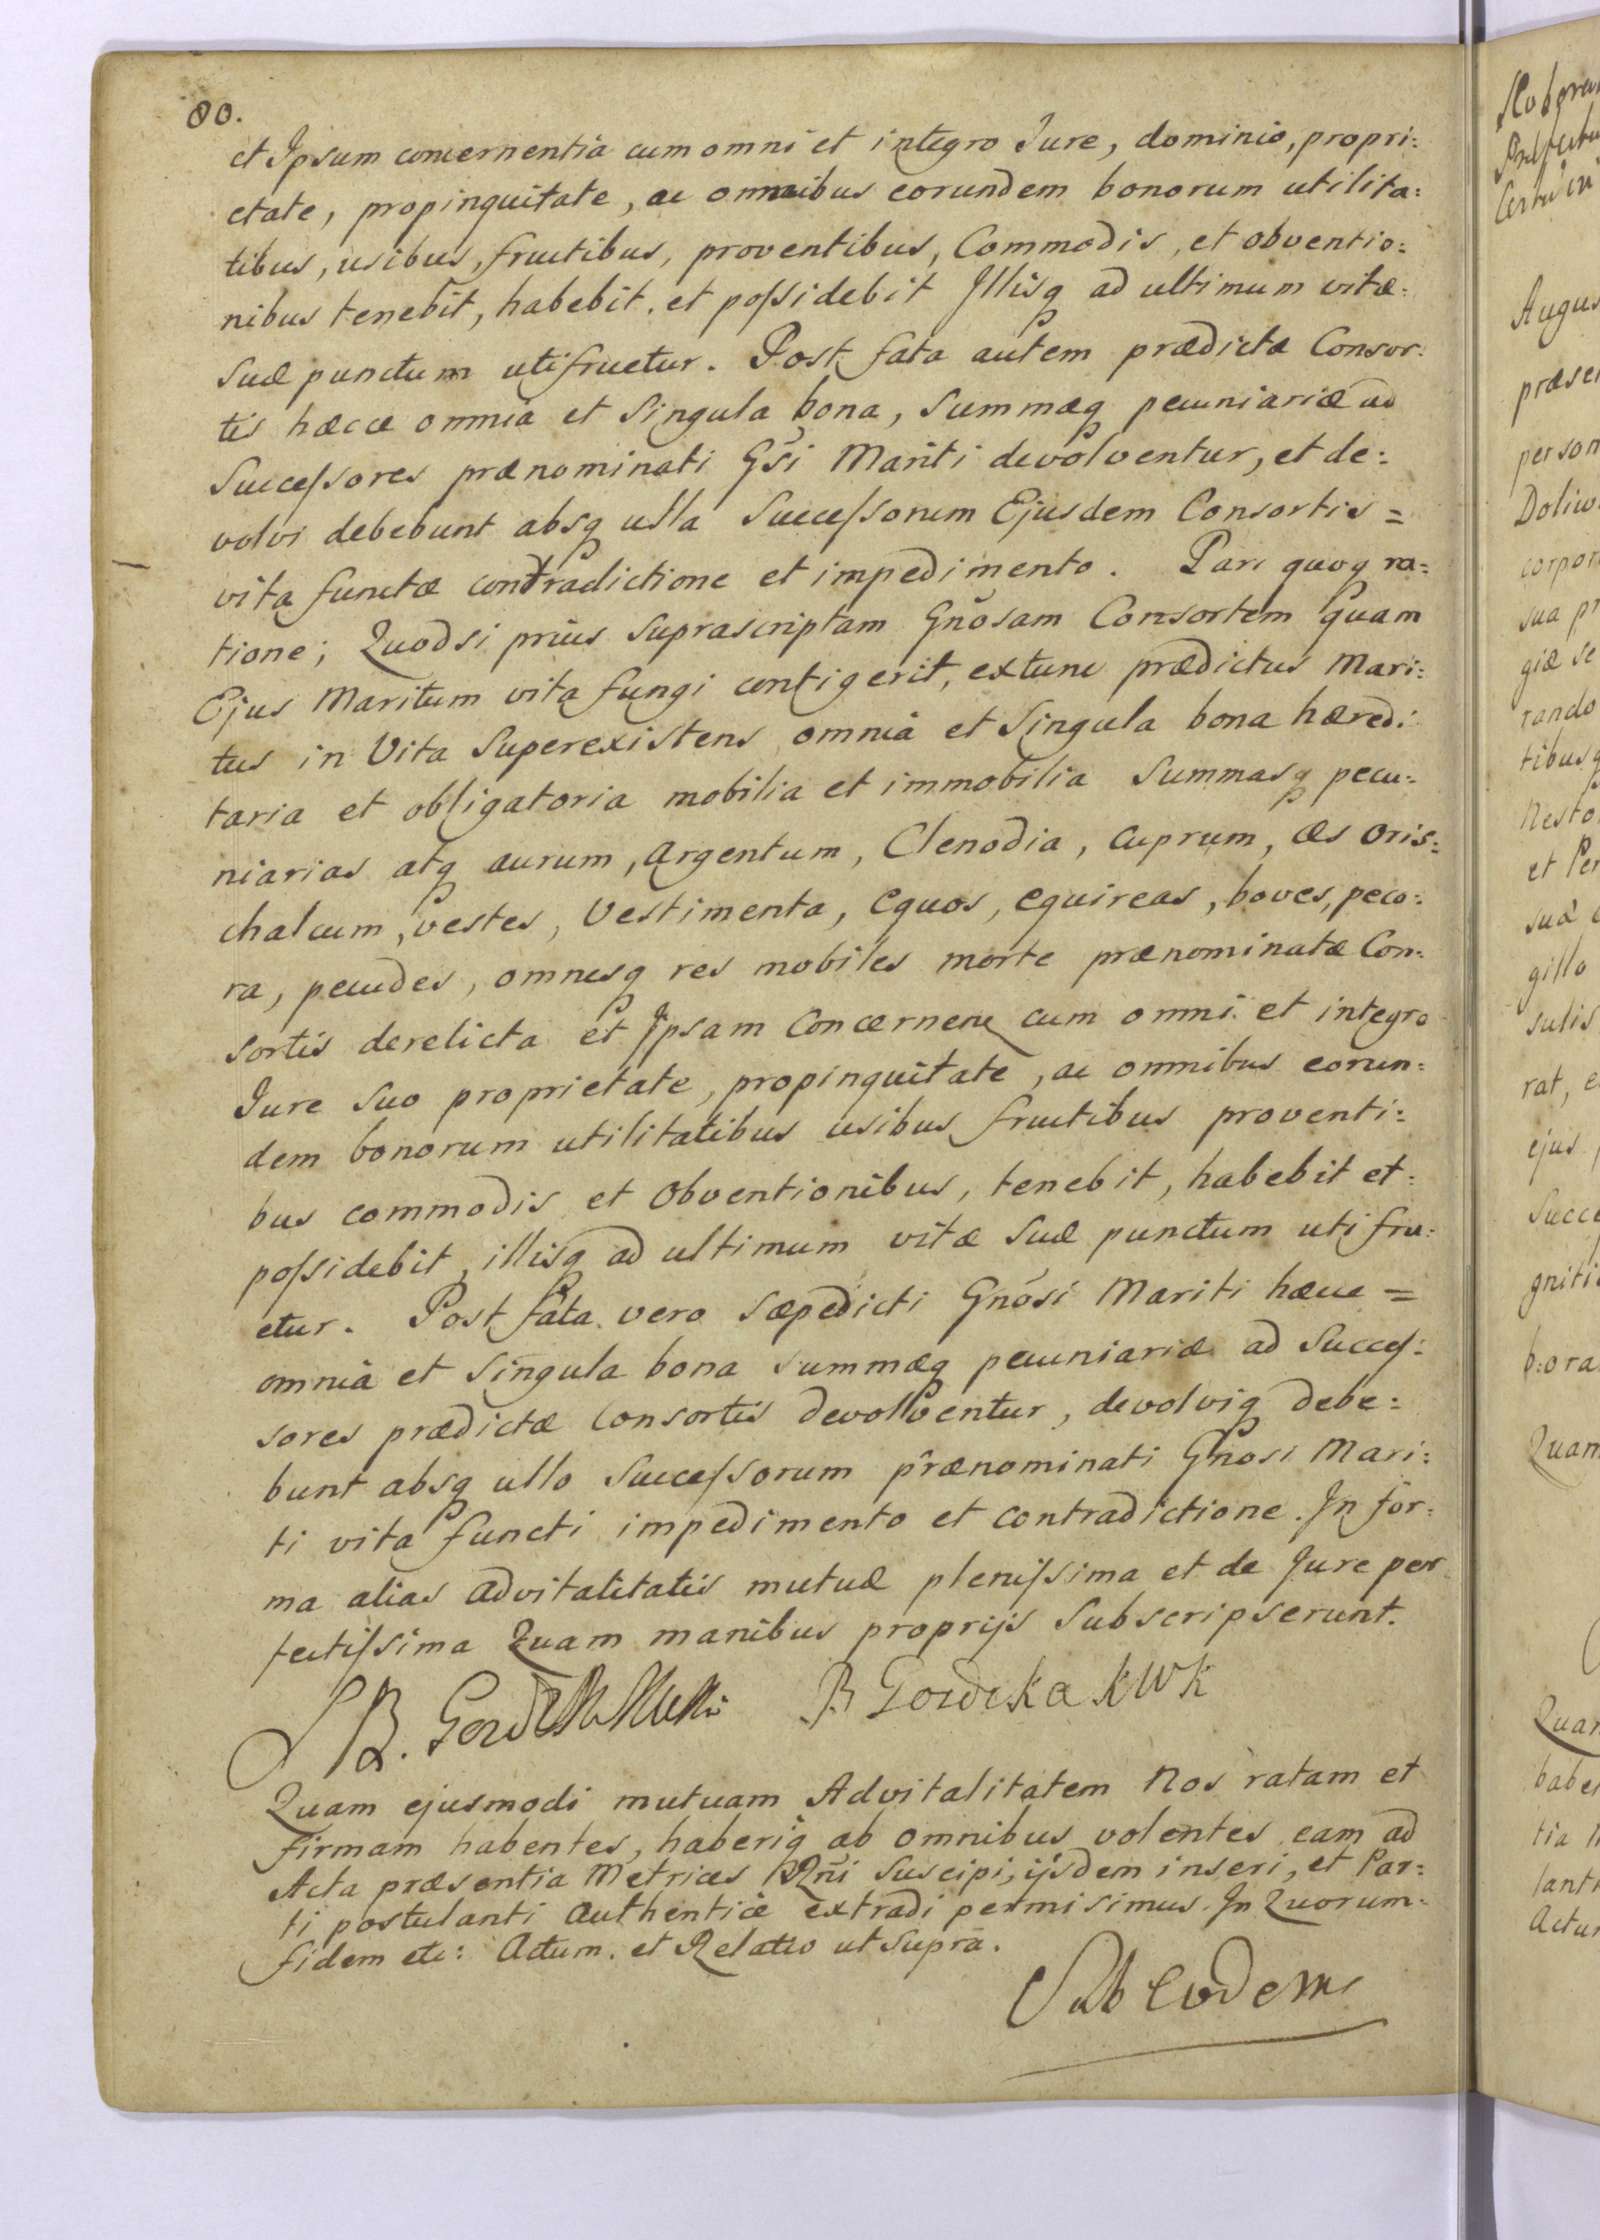 80.
et Ipsum concernentia cum omni et integro Jure, dominio, propri:
etate, propinquitate, ac omnibus eorundem bonorum utilita:
tibus, usibus, fructibus, proventibus, Commodis, et obventio:
nibus tenebit, habebit. et possidebit Illisq ad ultimum vitæ:
suæ punctum utifruetur. Post fata autem prædictæ Consor:
tis hæcce omnia et singula bona, Summæq pecuniariæ ad
Successores prænominati Gsi Mariti devolventur, et de:
volvi debebunt absq ulla Successorum Ejusdem Consortis =
vita functæ contradictione et impedimento. Pari quoq ra=
tione; Quodsi prius suprascriptam Gnosam Consortem quam
Ejus Maritum vita fungi contigerit, extunc prædictus Mari:
tus in Vita Superexistens omnia et Singula bona hæredi:
taria et obligatoria mobilia et immobilia Summasq pecu:
niarias atq aurum, Argentum, Clenodia, Cuprum, æs oris:
chalcum, vestes, Vestimenta, Equos, equireas, boves, peco:
ra, pecudes, omnesq res mobiles morte prænominatæ Con:
sortis derelicta et Ipsam Concernen cum omni et integro
Jure suo proprietate, propinquitate, ac omnibus eorun:
dem bonorum utilitatibus usibus fructibus proventi:
bus commodis et Obventionibus, tenebit, habebit et:
possidebit, illisq ad ultimum vitæ suæ punctum uti fru:
etur. Post fata vero sæpedicti Gnosi Mariti hæcce =
omnia et singula bona summæq pecuniariæ ad Succes:
sores prædictæ Consortis devolventur, devolviq debe:
bunt absq ullo Successorum prænominati Gnosi Mari:
ti vita functi impedimento et contradictione. In for:
ma alias advitalitatis mutuæ plenissima et de Jure per
fectissima Quam manibus proprijs subscripserunt.
B Gordcka KWK
Quam ejusmodi mutuam Advitalitatem Nos ratam et
firmam habentes, haberiq ab omnibus volentes eam ad
Acta præsentia Metrices Rgni suscipi, ijsdem inseri, et Par:
ti postulanti Authentice extradi permisimus. In Quorum:
fidem etc: Actum. et Relatio ut supra.
Sub Eodem